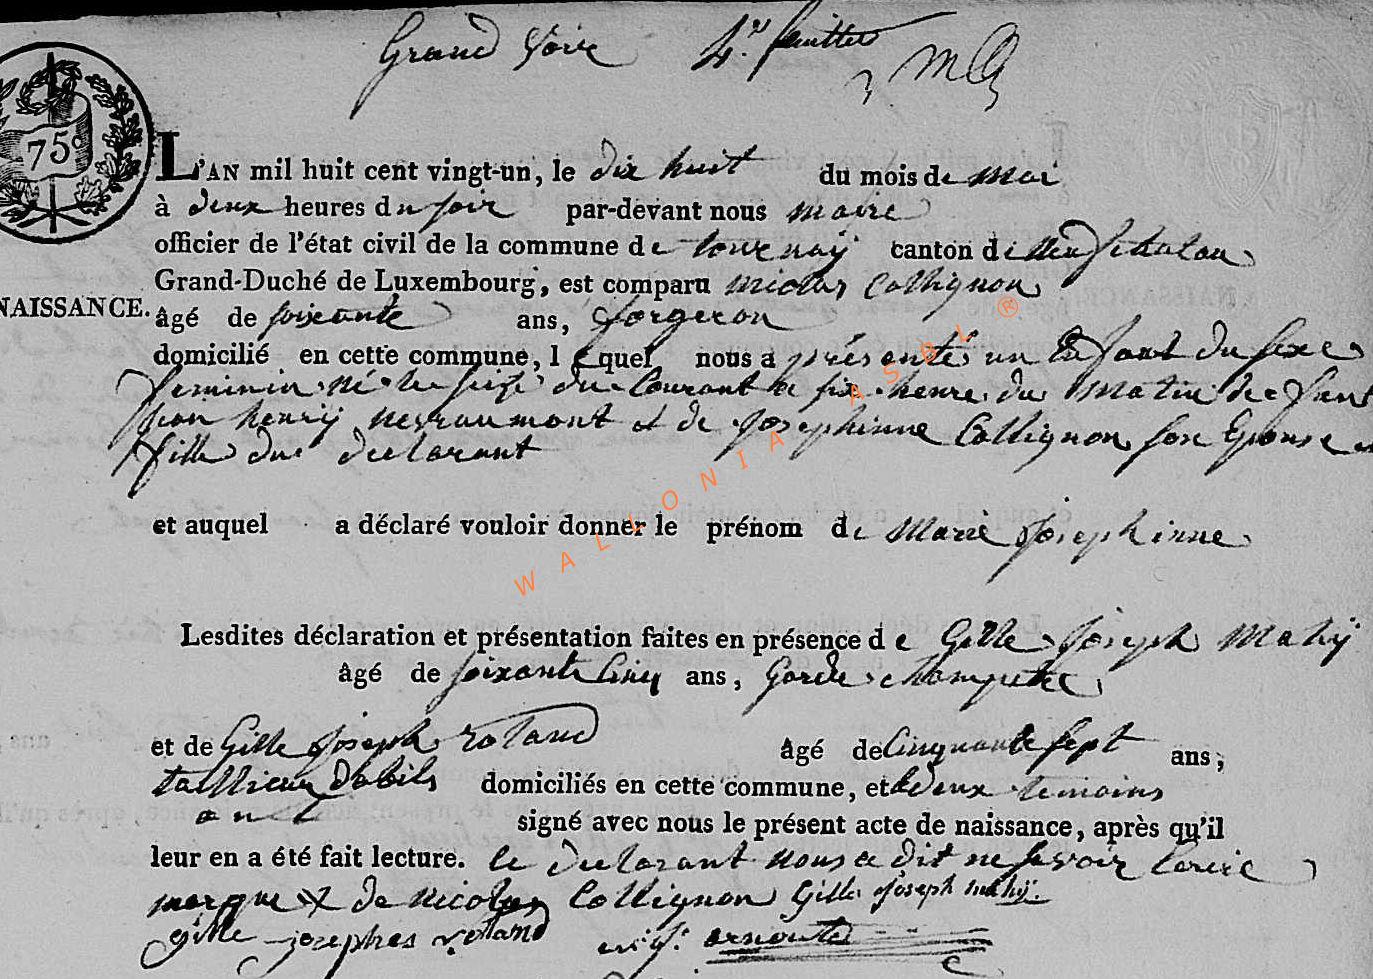 Grand voir 4e feuillet
75c
L'AN mil huit cent vingt-un, le dix huit du mois de mai
à deux heures du soir par-devant nous maire
officier de l'état civil de la commune de tournay canton de neufchatau
Grand-Duché de Luxembourg, est comparu nicolas Collignon
NAISSANCE.
âgé de soixante ans, forgeron
domicilié en cette commune, lequel nous a présenté un Enfant du sexe
feminin né le seize du Courant a six heure du Matin de
jean henry neyraumont et de josephinne Collignon son Epouse
fille du declarant
et auquel a déclaré vouloir donner le prénom de Marie josephinne
Lesdites déclaration et présentation faites en présence de Gille joseph Mahÿ
âgé de soixante Cinq ans, Garde champetre
et de Gille joseph roland âgé de Cinquante sept ans,
taillieur Dabils domiciliés en cette commune, et le deux temoins
ont signé avec nous le présent acte de naissance, après qu'il
leur en a été fait lecture. le declarant nous a dit ne savoir Ecrire
marque X de nicolas Collignon Gille joseph mahÿ
gille josephes roland arnould
WALLONIA ASBL ®